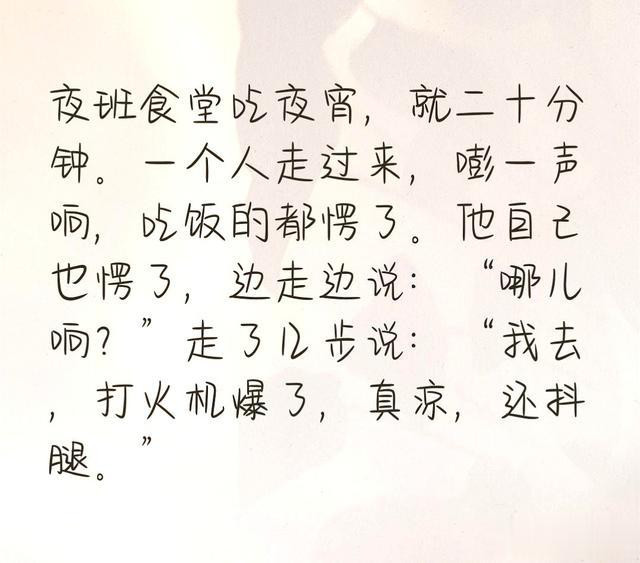 夜班食堂吃夜宵，就二十分
钟。一个人走过来，嘭一声
响，吃饭的都愣了。他自己
也愣了，边走边说：“哪儿
响？”走了几步说：“我去
，打火机爆了，真凉，还抖
腿。”